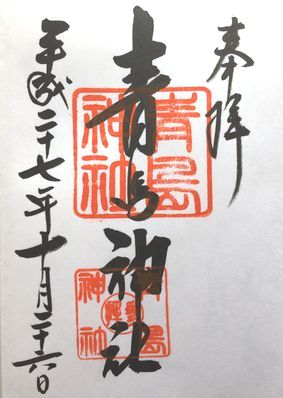 奉拝
青島神社
青島神社
平成二十七年十月二十六日